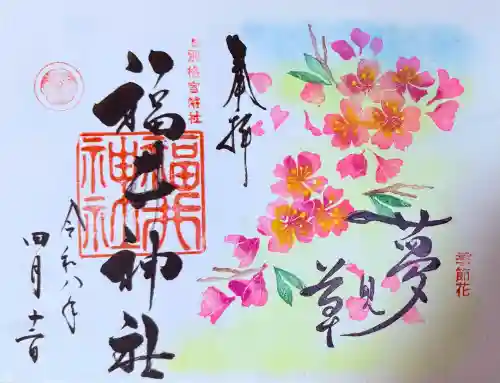 奉拝
別格官幣社
福井神社
福井神社
令和八年
四月十二日
夢見草
季節花